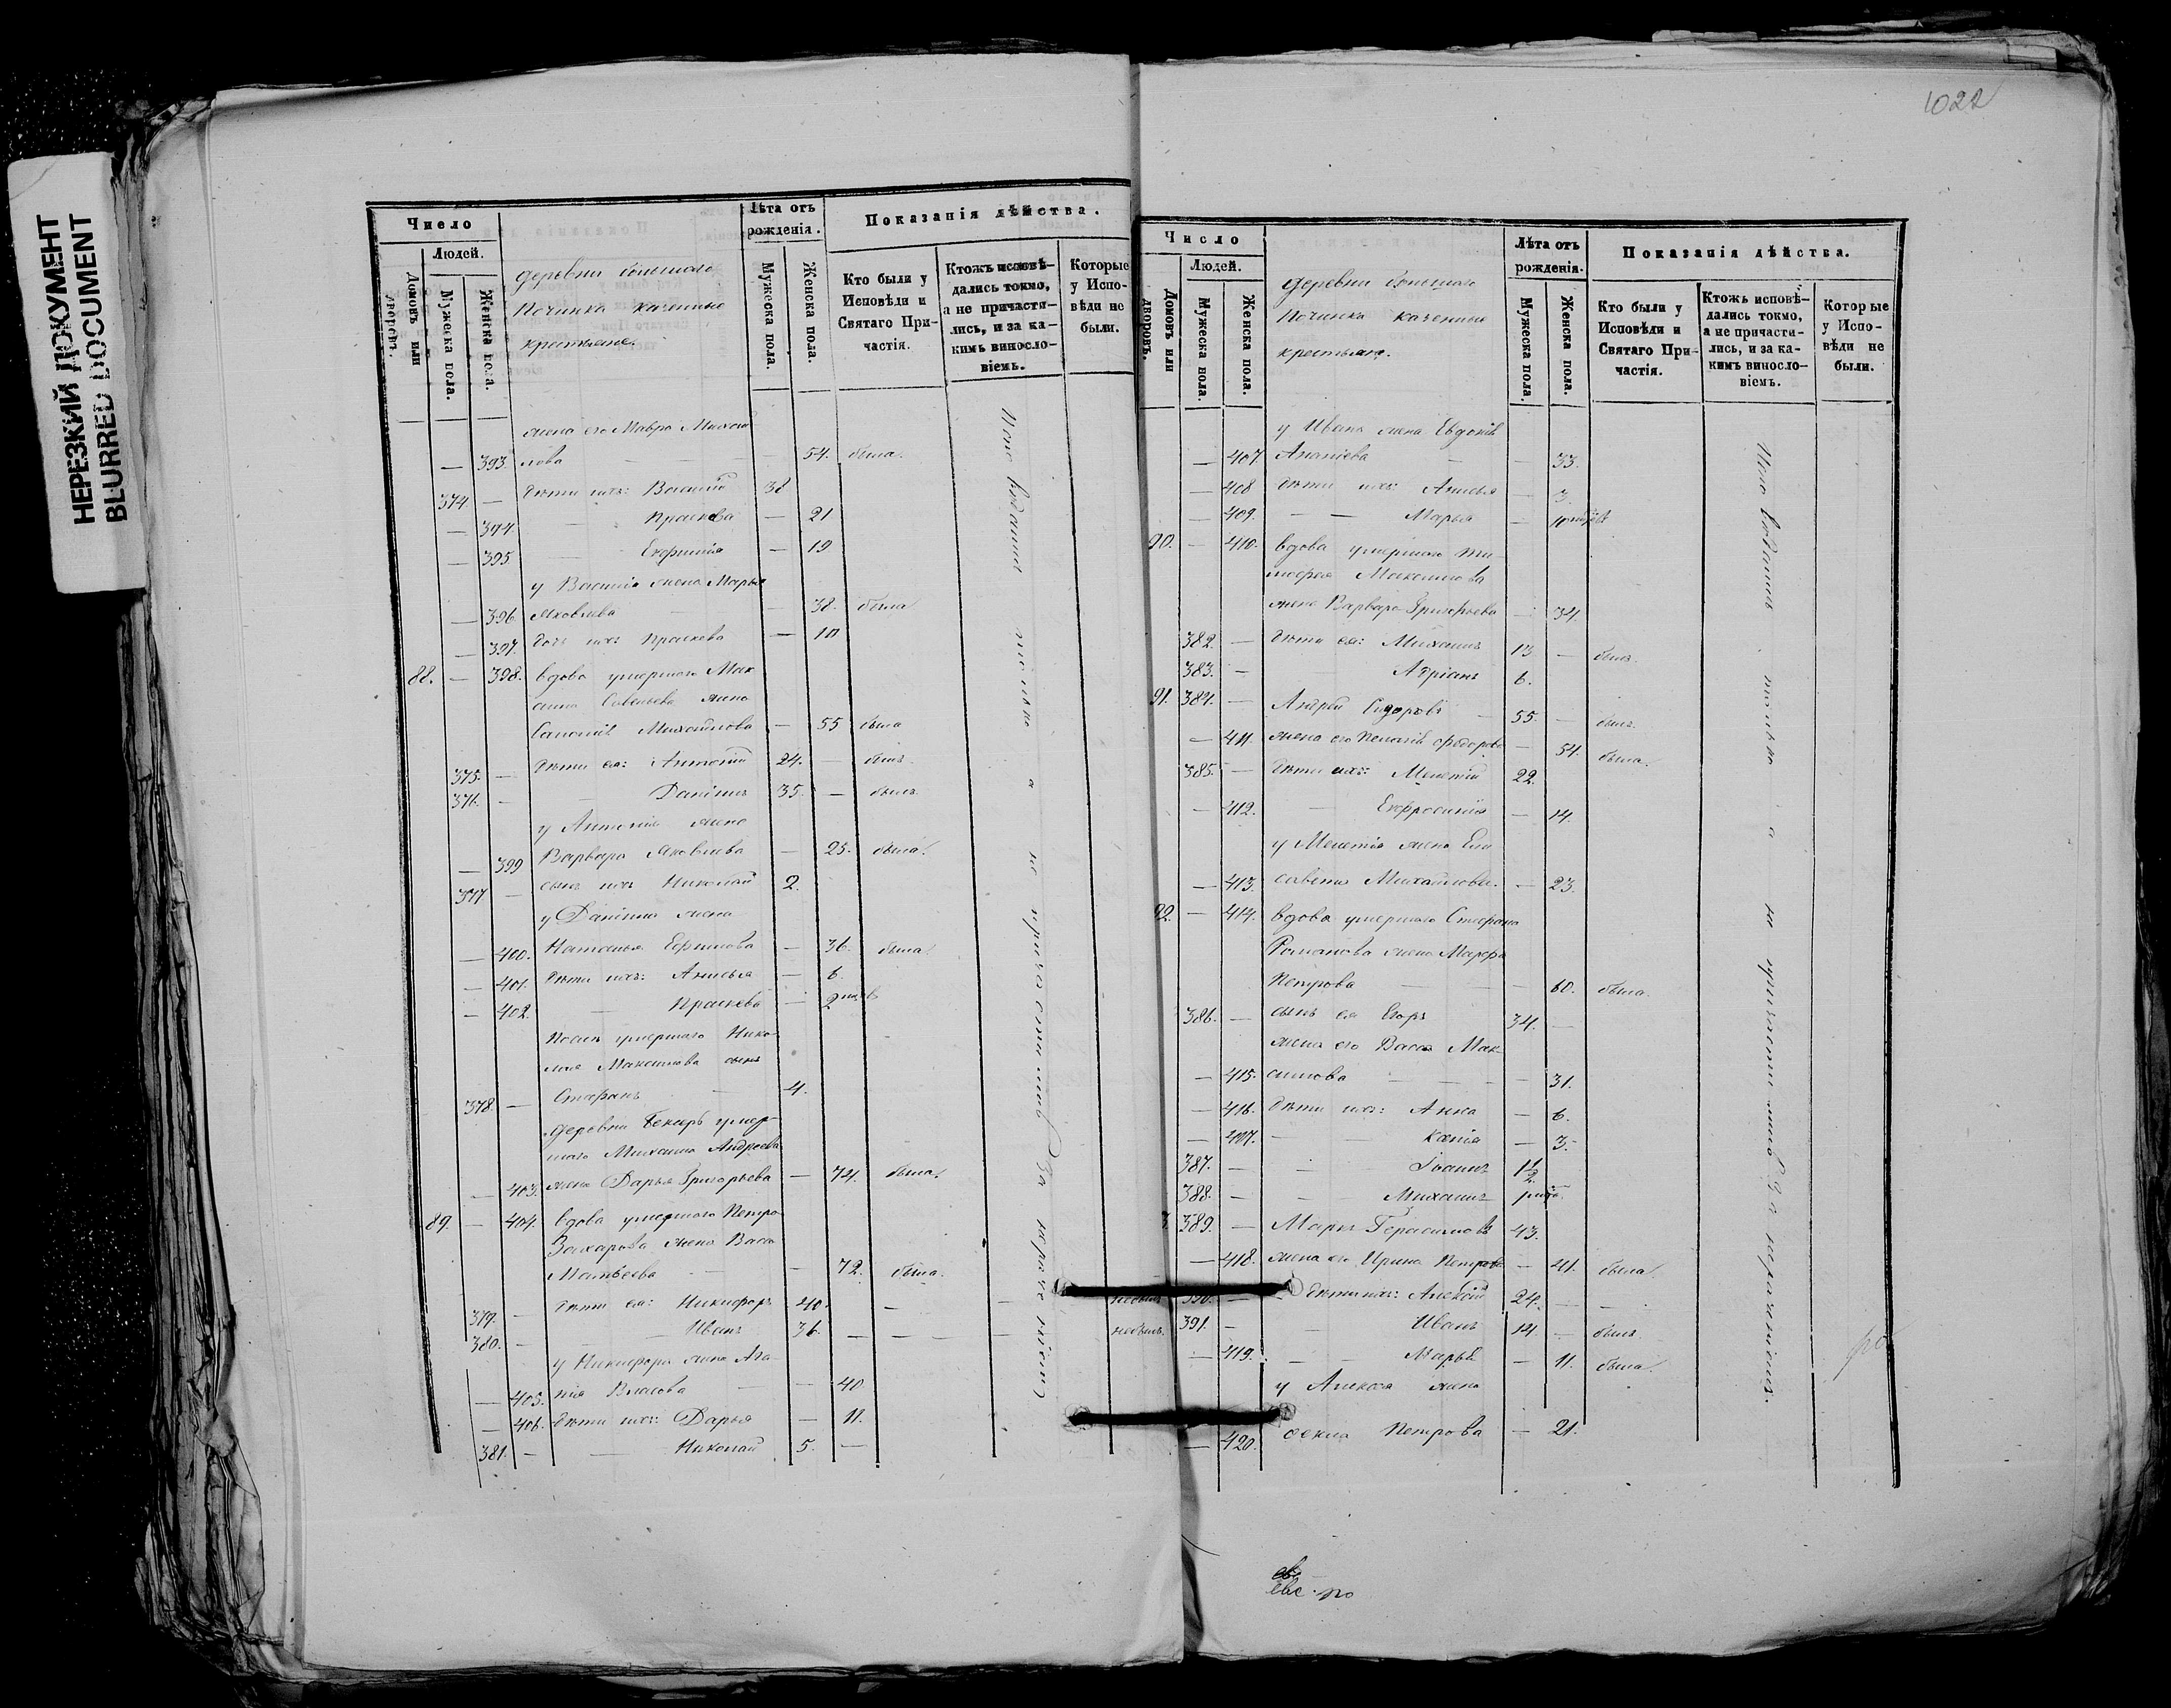 НЕРЕЗКИЙ ДОКУМЕНТ
BLURRED DOCUMENT
1022
Число
Людей.
Домовъ или дворовъ.
Мужеска пола.
Женска пола.
деревни большаго
Починка казенные
крестьяне.
Лѣта отъ рожденія.
Мужеска пола.
Женска пола.
Показанія дѣйства.
Кто были у Исповѣди и Святаго Причастія.
Ктожъ исповѣдались токмо, а не причастились, и за какимъ винословіемъ.
Которые у Исповѣди не были.
жена его Мавра Михаи
— 393 лова — 54. была.
374 — дѣти ихъ: Василій 38
— 394. — Праскева — 21
— 395 — Евфимія — 19
у Василія жена Марья
— 396. Яковлева — 38. была
— 397. дочь ихъ Праскева — 10
88. — 398. вдова умершаго Мак
сима Савельева жена
Михайлова — 55 была
375. — дѣти ея: Антоній 24. — былъ
376. — — Даніилъ 35. — былъ
у Антонія жена
— 399 Варвара Яковлева — 25. была.
377 — сынъ ихъ Николай 2.
у Даніила жена
— 400. Наталья Ефимова — 36. была.
— 401. дѣти ихъ: Анисья — 6.
— 402. — Праскева — 2
Послѣ умершаго Нико-
лая Максимова сынъ
378. — Стефанъ — 4.
деревни умер-
шаго Михаила Андреева
— 403. жена Дарья Григорьева — 74. была.
89. — 404. вдова умершаго Петра
Захарова жена Васса
Матвѣева — — 72. была.
379. — дѣти ея: Никифоръ 40. — — небылъ
380. — — Иванъ 36. — — — — небылъ.
у Никифора жена Ага-
— 405. пія Власова — — 40
— 406. дѣти ихъ: Дарья — 11.
381. — — Николай 5. —
Исповѣдались токмо а не причастились За нераченіемъ
Число
Людей.
Домовъ или дворовъ.
Мужеска пола.
Женска пола.
деревни большаго
Починка казенные
крестьяне.
Лѣта отъ рожденія.
Мужеска пола.
Женска пола.
Показанія дѣйства.
Кто были у Исповѣди и Святаго Причастія.
Ктожъ исповѣдались токмо, а не причастились, и за какимъ винословіемъ.
Которые у Исповѣди не были.
у Ивана жена Евдокія
— 407. Ананіева — — 33.
— 408 дѣти ихъ: Анисья — 3.
— 409. — — Марья — 10
90. — 410. вдова умершаго Ти-
мофея Максимова
жена Варвара Григорьева — 34.
382. — дѣти ея: Михаилъ 13 — былъ.
383. — — Адріанъ 6.
91. 384. — Андрей Сидоровъ — 55. — былъ.
— 411. жена его Пелагія Федорова — 54. была.
385. — дѣти ихъ: Мелетій 22.
— 412. — Евфросинія — 14.
у Мелетія жена Ели
— 413. савета Михайлова. — 23.
92. — 414. вдова умершаго Стефана
Романова жена Марфа
Петрова — — — 60. была.
386. — сынъ ея Егоръ 34. —
жена его Васса Мак-
— 415. симова — — — — 31.
— 416. дѣти ихъ: Анна — 6.
— 417. — — Ксенія — 3.
387. — — Іоаннъ 1 1/2
388. — — Михаилъ
3. 389. — Маркъ Герасимовъ 43.
— 418. жена его Ирина Петрова — 41. была.
390. — дѣти ихъ: Алексій 24. — —
391. — — Иванъ 14. — былъ.
— 419. — — Марья — 11. была.
у Алексія жена
— 420. Ѳекла Петрова — 21.
Исповѣдались токмо а не причастились За нераченіемъ.